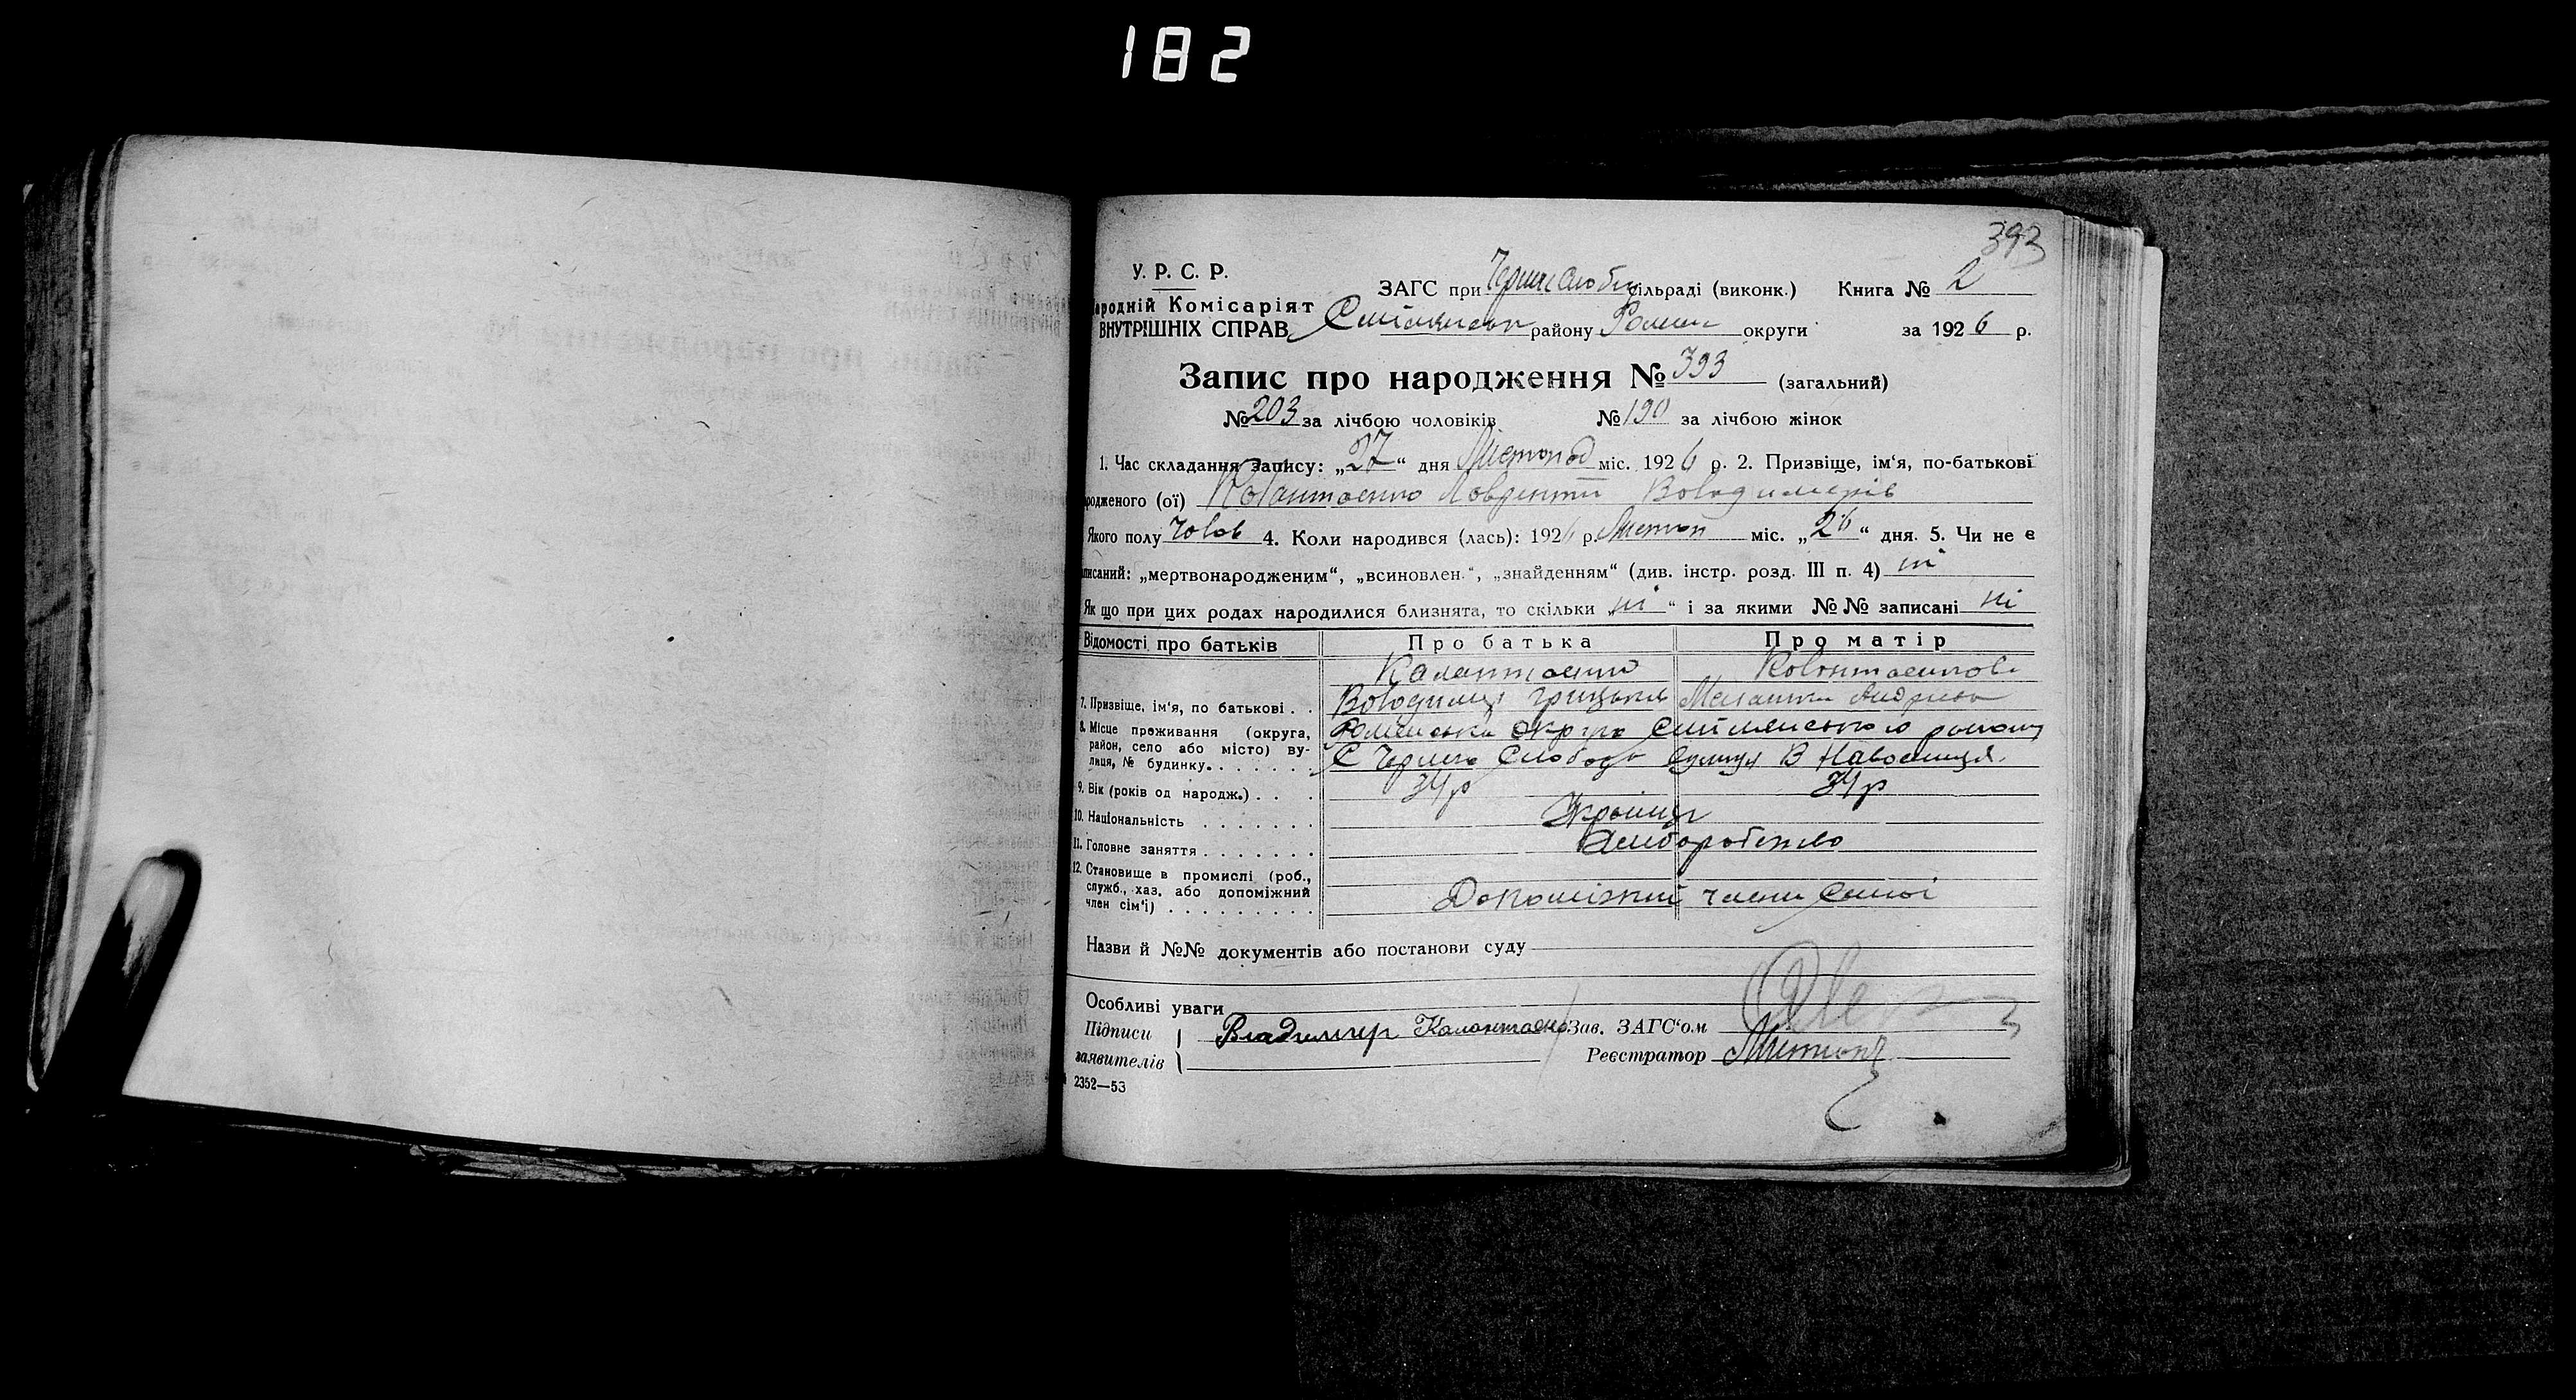 182
393
У. Р. С. Р.
ЗАГС при Черне Слобід сільраді (виконк.) Книга № 2
ародній Комісаріят
ВНУТРІШНІХ СПРАВ Смілянськ району Ромен округи за 1926 р.
Запис про народження № 393 (загальний)
№ 203 за лічбою чоловіків № 190 за лічбою жінок
1. Час складання запису: „27“ дня Листопад міс. 1926 р. 2. Призвіще, ім‘я, по-батькові
родженого (ої) Калантаенко Ловрентій Володимерів
Якого полу Чолов 4. Коли народився (лась): 1926 р. Листоп міс. „26“ дня. 5. Чи не є
аписаний: „мертвонародженим“, „всиновлен.“, „знайденням“ (див. інстр. розд. III п. 4) ні
Як що при цих родах народилися близнята, то скільки „ні“ і за якими №№ записані ні
Відомості про батьків Про батька Про матір
Калантаенко
7. Призвіще, ім‘я, по батькові . . Володимер Грицьків Меланка Андріев
8. Місце проживання (округа, район, село або місто) вулиця, № будинку. Роменська Округа Смілянського району
С Черече Слобода вулиця В Навасилиця.
9. Вік (років од народж.) . . . 34 р 34 р
10. Національність . . . . . . . Україн
11. Головне заняття . . . . . . . Хлиборобство
12. Становище в промислі (роб., служб., хаз. або допоміжний член сім‘ї) . . . . . . . . . Допоміжний члени Семьі
Назви й №№ документів або постанови суду
Особливі уваги
Підписи Владимир Калантаенко Зав. ЗАГС‘ом
заявителів Реєстратор
2352—53